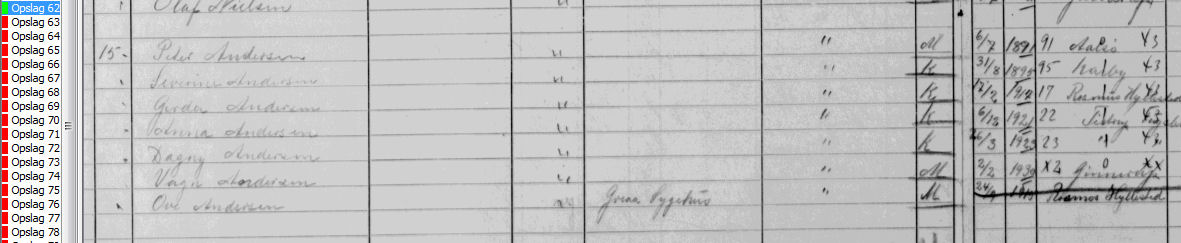 Opslag 62
Opslag 63
Opslag 64
Opslag 65
Opslag 66
Opslag 67
Opslag 68
Opslag 69
Opslag 70
Opslag 71
Opslag 72
Opslag 73
Opslag 74
Opslag 75
Opslag 76
Opslag 77
Opslag 78
Olaf Nielsen
15 Peter Andersen " " M 6/7 1891 91 43
Severine Andersen " " K 31/8 1895 95 43
Gerda Andersen " " K 12/2 1917 17 Rosmus Hyllested
Anna Andersen " " K 6/12 1921 22 43
Dagny Andersen " " K 26/3 1923 23 " 43
Vagn Andersen " " M 2/2 1930 x2 xx
Ove Andersen Grenaa Sygehus " M 24/9 Rosmos Hyllested